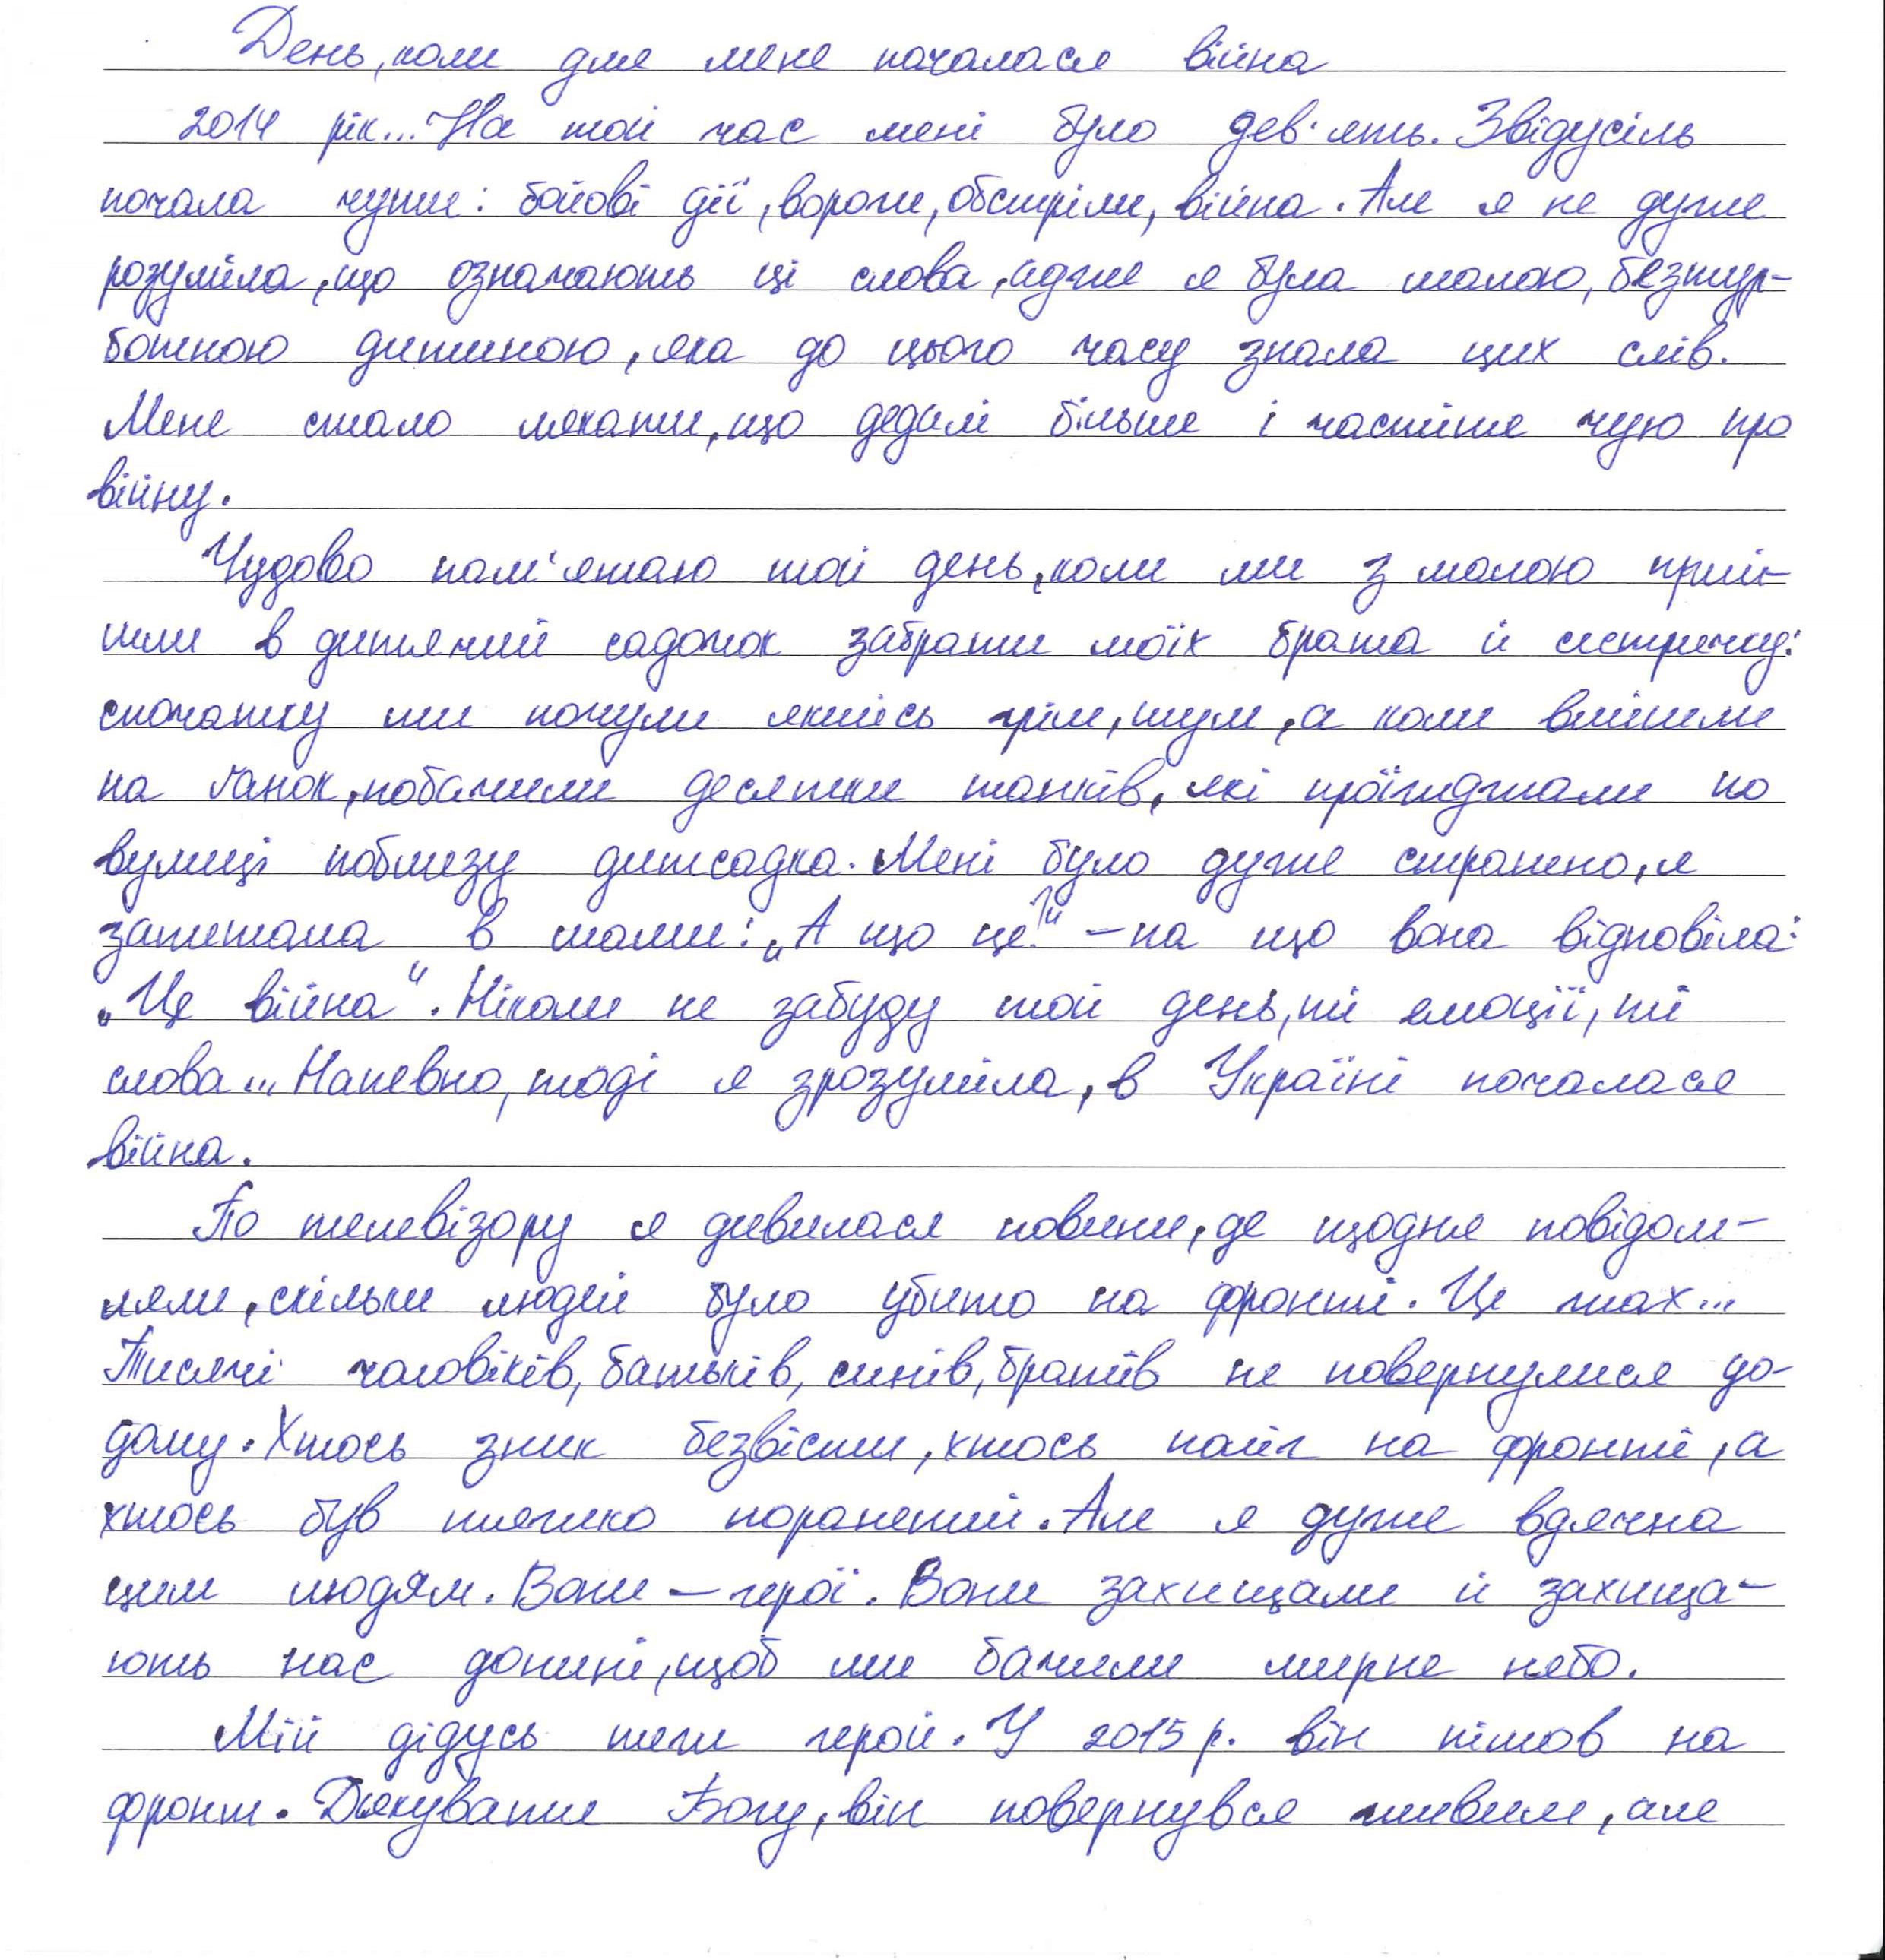 День, коли для мене почалася війна
2014 рік... На той час мені було дев'ять. Звідусіль
почала чути: бойові дії, вороги, обстріли, війна. Але я не дуже
розуміла, що означають ці слова, адже я була малою, безтур-
ботною дитиною, яка до цього часу знала цих слів.
Мене стало лякати, що дедалі більше і частіше чую про
війну.
Чудово пам'ятаю той день, коли ми з мамою прий-
шли в дитячий садочок забрати моїх брата й сестричку:
спочатку ми почули якийсь грім, шум, а коли вийшли
на ґанок, побачили десятки танків, які проїжджали по
вулиці поблизу дитсадка. Мені було дуже страшно, я
запитала в мами: „А що це?“ – на що вона відповіла:
„Це війна“. Ніколи не забуду той день, ті емоції, ті
слова... Напевно, тоді я зрозуміла, в Україні почалася
війна.
По телевізору я дивилася новини, де щодня повідом-
ляли, скільки людей було убито на фронті. Це жах...
Тисячі чоловіків, батьків, синів, братів не повернулися до-
дому. Хтось зник безвісти, хтось поліг на фронті, а
хтось був тяжко поранений. Але я дуже вдячна
цим людям. Вони – герої. Вони захищали й захища-
ють нас донині, щоб ми бачили мирне небо.
Мій дідусь теж герой. У 2015 р. він пішов на
фронт. Дякувати Богу, він повернувся живим, але